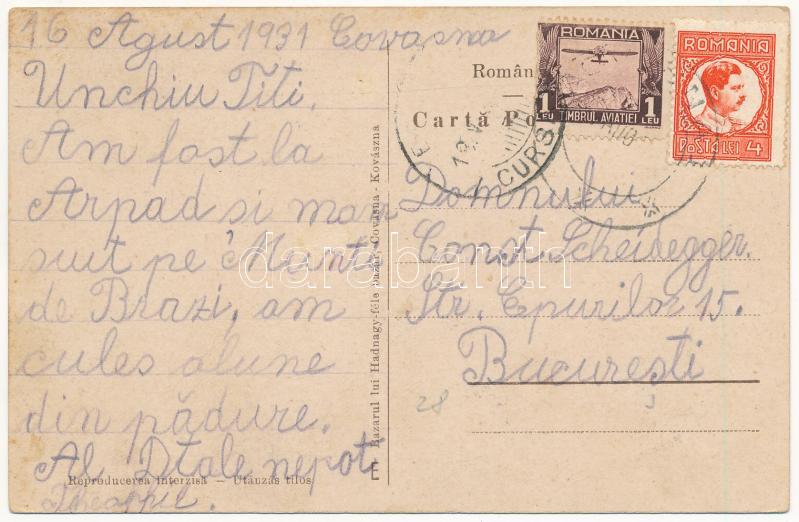 16 Agust 1931 Covasna
Unchiu Titi.
Am fost la
Arpad si mam
suit pe Munti
de Brazi, am
cules alune
din pădure.
Al Dtale nepot
Reproducerea interzisă — Utánzás tilos
Bazarul lui Hadnagy-féle bazár, Covasna - Kovászna
Român
Cartă Po
CURS
ROMANIA
1 LEU TIMBRUL AVIATIEI 1 LEU
ROMANIA
POSTA LEI 4
Domnului
Const. Scheidegger.
Str. Epurilor 15.
București
28
darabanth